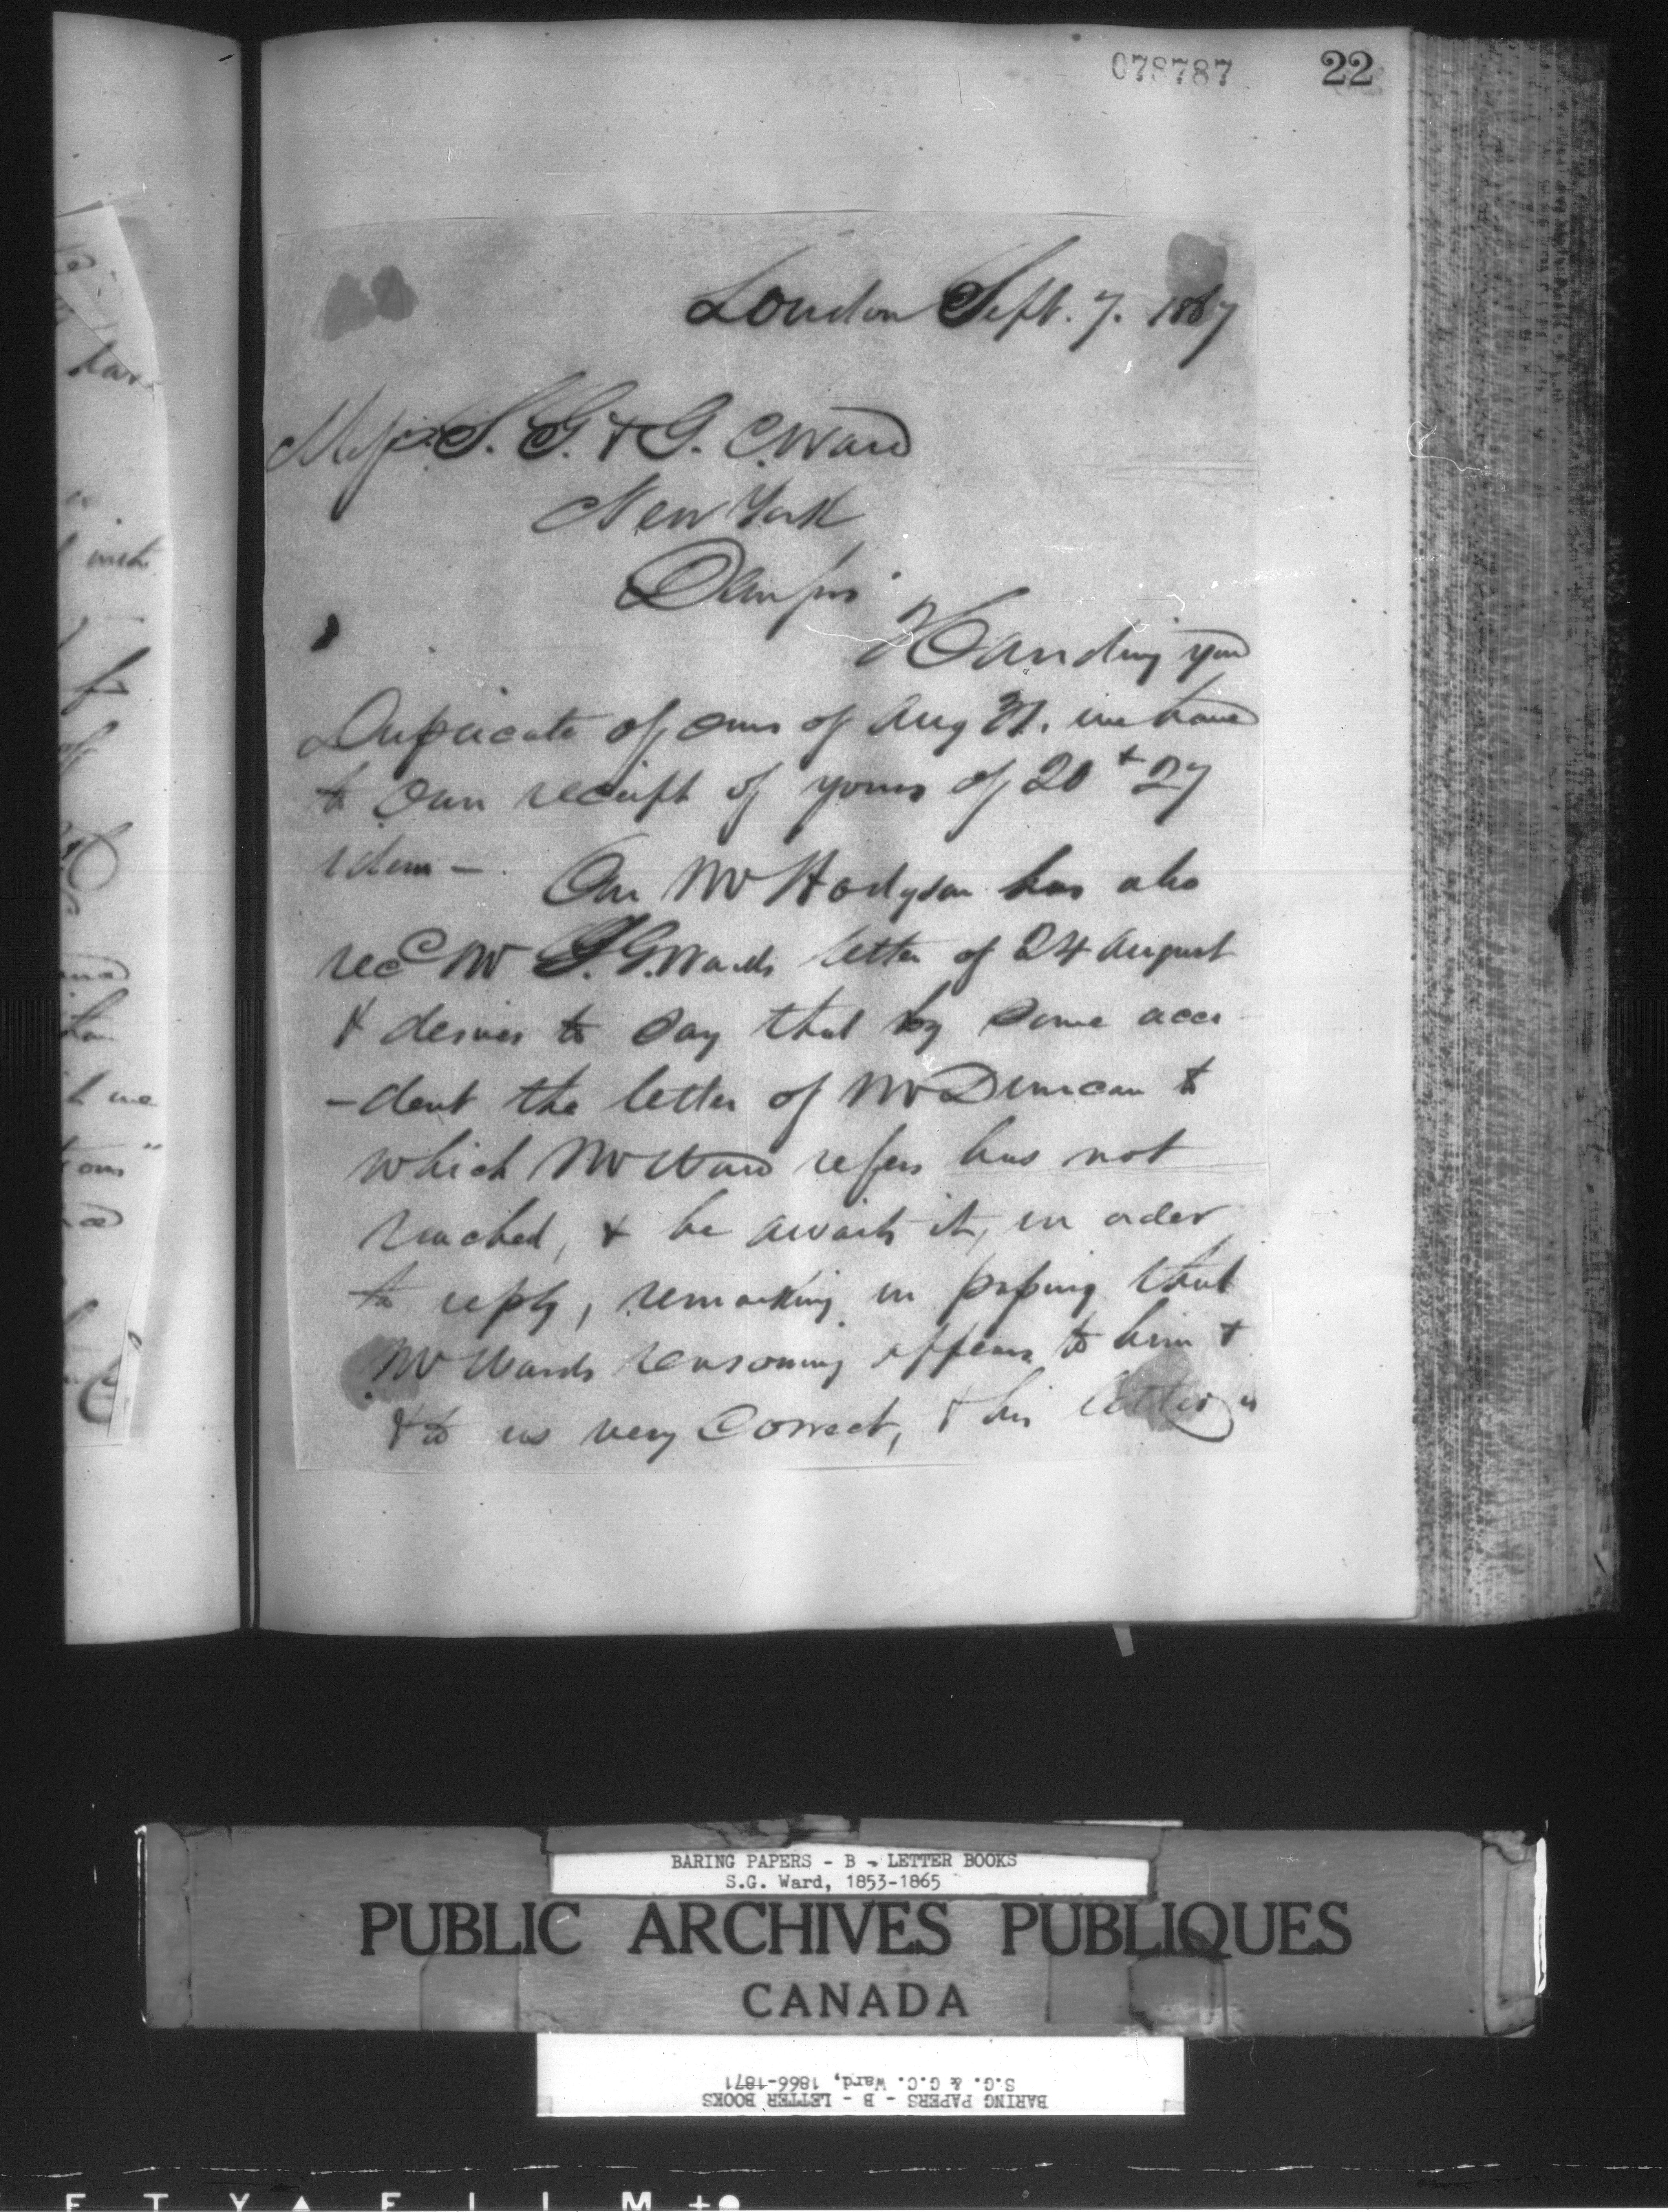 078787 22
London Sept. 7. 1867
Messrs. S. G. & G. C. Ward
New York
Dear Sirs
Handing you
Duplicate of ours of Aug 31. we have
to own receipt of yours of 20 + 27
idem —
Our Mr Hodgson has also
recd Mr S. G. Wards letter of 24 August
& desires to say that by some acci
-dent the letter of Mr Duncan to
which Mr Ward refers has not
reached, & he awaits it, in order
to reply, remarking in passing that
Mr Wards reasoning appears to him &
& to us very Correct, & his letter is
have
with
for
of
and
we
BARING PAPERS - B - LETTER BOOKS
S.G. Ward, 1853-1865
PUBLIC ARCHIVES PUBLIQUES
CANADA
BARING PAPERS - B - LETTER BOOKS
S.G. & G.C. Ward, 1866-1871
E T Y A F I L M